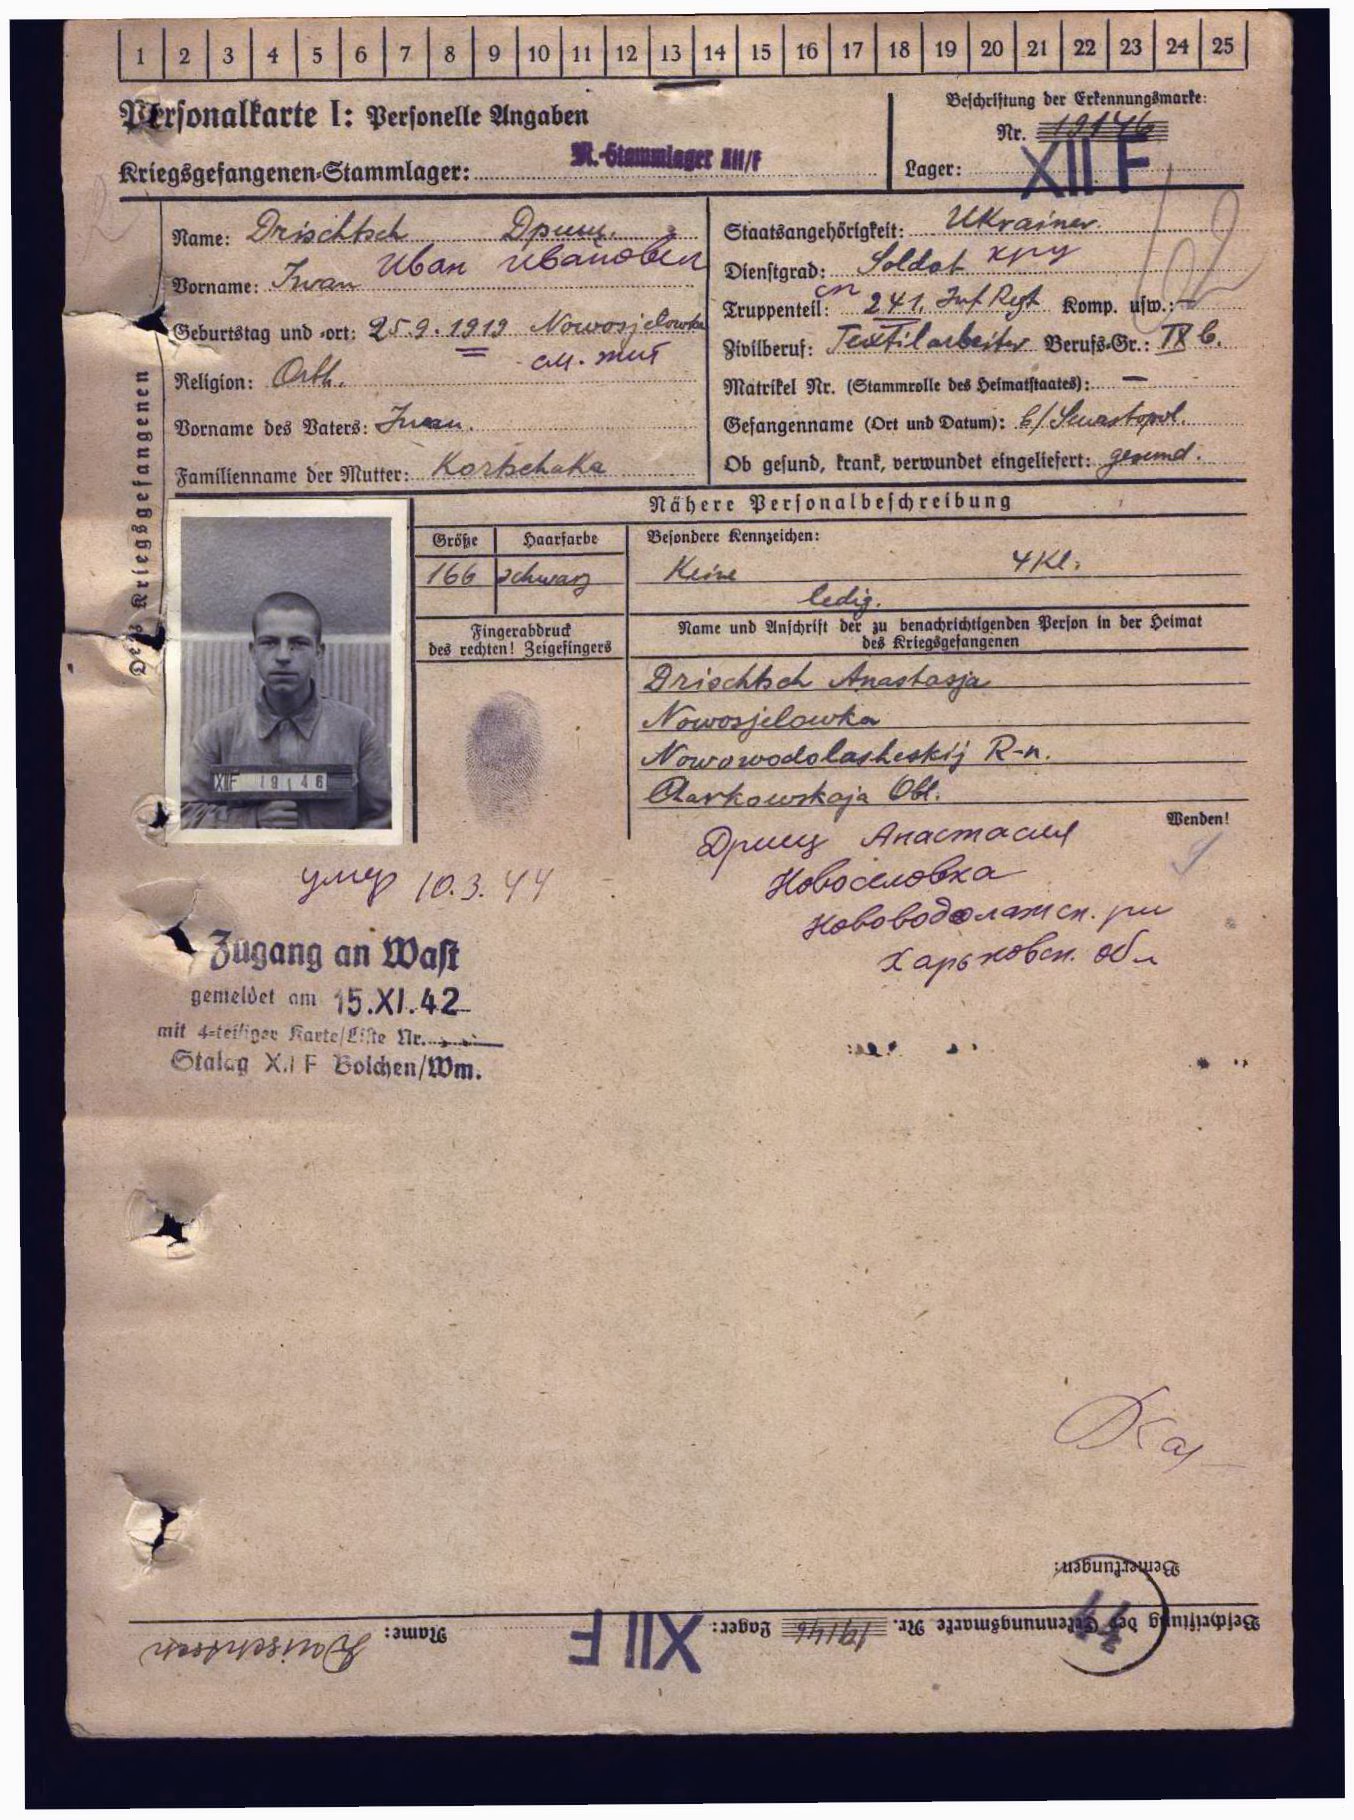 1 2 3 4 5 6 7 8 9 10 11 12 13 14 15 16 17 18 19 20 21 22 23 24 25
Personalkarte I: Personelle Angaben
Beschriftung der Erkennungsmarke:
Nr. 19146
Kriegsgefangenen-Stammlager: M.-Stammlager XII/F
Lager: XII F
Des Kriegsgefangenen
Name: Drischtsch Дрищ.
Иван Иванович
Vorname: Iwan
Geburtstag und -ort: 25.9.1919 Nowosjelowka
см. тит
Religion: Orth.
Vorname des Vaters: Iwan.
Familienname der Mutter: Kortschaka
Staatsangehörigkeit: Ukrainer.
Dienstgrad: Soldat кру
сп
Truppenteil: 241. Inf Regt Komp. usw.: –
Zivilberuf: Textilarbeiter Berufs-Gr.: IX b.
Matrikel Nr. (Stammrolle des Heimatstaates): –
Gefangenname (Ort und Datum): b/Sewastopol.
Ob gesund, krank, verwundet eingeliefert: gesund.
Nähere Personalbeschreibung
Größe Haarfarbe Besondere Kennzeichen:
166 schwarz Keine 4 Kl.
ledig.
Fingerabdruck
des rechten! Zeigefingers
Name und Anschrift der zu benachrichtigenden Person in der Heimat
des Kriegsgefangenen
Drischtsch Anastasja
Nowosjelowka
Nowowodolasheskij R-n.
Charkowskaja Obl.
Wenden!
XIIF 19146
Дрищ Анастасия
Новоселовка
Нововодолажск. рн
Харьковск. обл
умер 10.3.44
Zugang an Wast
gemeldet am 15.XI.42
mit 4-teiliger Karte/Liste Nr.
Stalag XII F Bolchen/Wm.
Bemerkungen:
Beschriftung der Erkennungsmarke Nr. 19146 Lager: XII F Name: Drischtsch